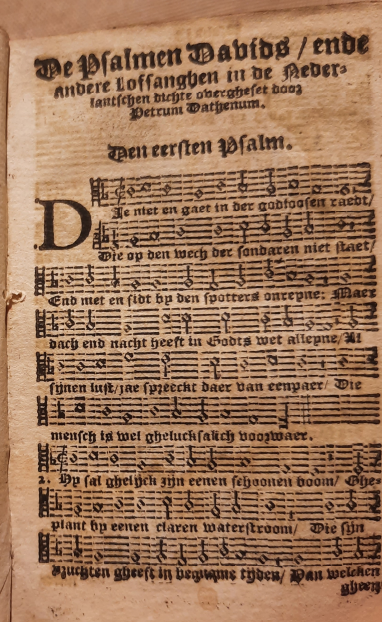 De Psalmen Davids / ende
Andere Loffsanghen in de Neder-
lantschen dichte overgheset door
Petrum Dathenum.
Den eersten Psalm.
Die niet en gaet in der godloosen raedt /
Die op den wech der sondaren niet staet /
End met en sidt by den spotters onreyne: Maer
dach end nacht heeft in Godts wet alleyne / Al
sijnen lust / jae spreeckt daer van eenpaer / Die
mensch is wel ghelucksalich voorwaer.
2. Hy sal ghelijck zijn eenen schoonen boom / Ghe-
plant by eenen claren waterstroom / Die sijn
vruchten gheeft in bequame tijden / Van welcken
gheen